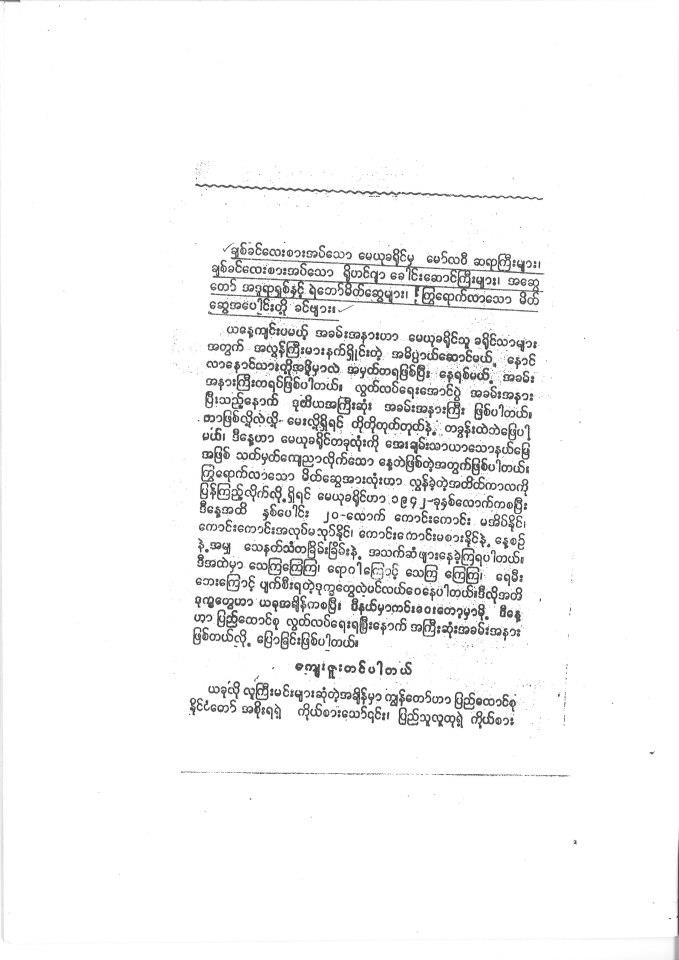 ချစ်ခင်လေးစားအပ်သော မေယုခရိုင်မှ မော်လဝီ ဆရာကြီးများ၊
ချစ်ခင်လေးစားအပ်သော ရိုဟင်ဂျာ ခေါင်းဆောင်ကြီးများ၊ အဆွေ
တော် အဒူရာရှစ်နှင့် ရဲဘော်မိတ်ဆွေများ၊ ကြွရောက်လာသော မိတ်
ဆွေအပေါင်းတို့ ခင်ဗျား။
ယနေ့ကျင်းပမယ့် အခမ်းအနားဟာ မေယုခရိုင်သူ ခရိုင်သားများ
အတွက် အလွန်ကြီးမားနက်ရှိုင်းတဲ့ အဓိပ္ပာယ်ဆောင်မယ့် နောင်
လာနောင်သားတို့အဖို့မှာလဲ အမှတ်တရဖြစ်ပြီး နေရစ်မယ့် အခမ်း
အနားကြီးတရပ်ဖြစ်ပါတယ်။ လွတ်လပ်ရေးအောင်ပွဲ အခမ်းအနား
ပြီးသည့်နောက် ဒုတိယအကြီးဆုံး အခမ်းအနားကြီး ဖြစ်ပါတယ်။
ဘာဖြစ်လို့လဲလို့ မေးလို့ရှိရင် တိုတိုတုတ်တုတ်နဲ့ တခွန်းထဲဘဲဖြေပါ
မယ်၊ ဒီနေ့ဟာ မေယုခရိုင်တခုလုံးကို အေးချမ်းသာယာသောနယ်မြေ
အဖြစ် သတ်မှတ်ကျေညာလိုက်သော နေ့ဘဲဖြစ်တဲ့အတွက်ဖြစ်ပါတယ်။
ကြွရောက်လာသော မိတ်ဆွေအားလုံးဟာ လွန်ခဲ့တဲ့အတိတ်ကာလကို
ပြန်ကြည့်လိုက်လို့ရှိရင် မေယုခရိုင်ဟာ ၁၉၄၂-ခုနှစ်လောက်ကစပြီး
ဒီနေ့အထိ နှစ်ပေါင်း ၂၀-လောက် ကောင်းကောင်း မအိပ်နိုင်၊
ကောင်းကောင်းအလုပ်မလုပ်နိုင်၊ ကောင်းကောင်းမစားနိုင်နဲ့ နေ့စဉ်
နဲ့အမျှ သေနတ်သံတခြိမ်းခြိမ်းနဲ့ အသက်ဆံဖျားနေခဲ့ကြရပါတယ်။
ဒီအထဲမှာ သေကြကြေကြ၊ ရောဂါကြောင့် သေကြ ကြေကြ၊ ရေမီး
ဘေးကြောင့် ပျက်စီးရတဲ့ဒုက္ခတွေလဲမင်လယ်ဝေနေပါတယ်။ဒီလိုအတိ
ဒုက္ခတွေဟာ ယခုအချိန်ကစပြီး ဒီနယ်မှာကင်းဝေးတော့မှာမို့ ဒီနေ့
ဟာ ပြည်ထောင်စု လွတ်လပ်ရေးရပြီးနောက် အကြီးဆုံးအခမ်းအနား
ဖြစ်တယ်လို့ ပြောခြင်းဖြစ်ပါတယ်။
ကျေးဇူးတင်ပါတယ်
ယခုလို လူကြီးမင်းများဆုံတဲ့အချိန်မှာ ကျွန်တော်ဟာ ပြည်ထောင်စု
နိုင်ငံတော် အစိုးရရဲ့ ကိုယ်စားသော်၎င်း၊ ပြည်သူလူထုရဲ့ ကိုယ်စား